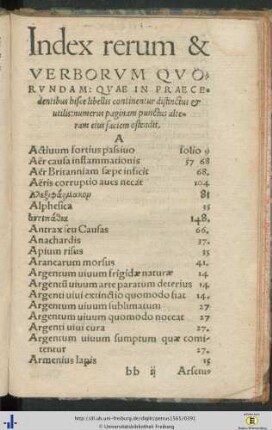 Index rerum &
VERBORVM QVO-
RVNDAM: QVAE IN PRAECE-
dentibus hisce libellis continentur distinctus &
utilis: numerus paginam punctus alte-
ram eius faciem ostendit.
A
Actiuum fortius passiuo folio 9
Aër causa inflammationis 57 68
Aër Britanniam sæpe inficit 68.
Aëris corruptio aues necat 104
81
Alphesica 15
148.
Antrax seu Causas 66.
Anachardis 27.
Apium risus 15
Arancarum morsus 41.
Argentum uiuum frigidæ naturæ 14
Argentū uiuum arte paratum deterius 14
Argenti uiui extinctio quomodo fiat 14.
Argentum uiuum sublimatum 27
Argentum uiuum quomodo noceat 27
Argenti uiui cura 27.
Argentum uiuum sumptum quæ comi-
tentur 27.
Armenius lapis 15
bb ij Arseni-
http://dl.ub.uni-freiburg.de/diglit/pernus1585/0391
© Universitätsbibliothek Freiburg